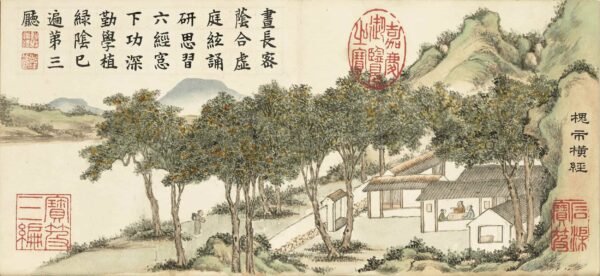 晝長密
蔭合虛
庭絃誦
研思習
六經窓
下功深
勤學植
綠陰已
遍第三
廳
嘉慶御覽之寶
槐市橫經
石渠寶笈
寶笈三編